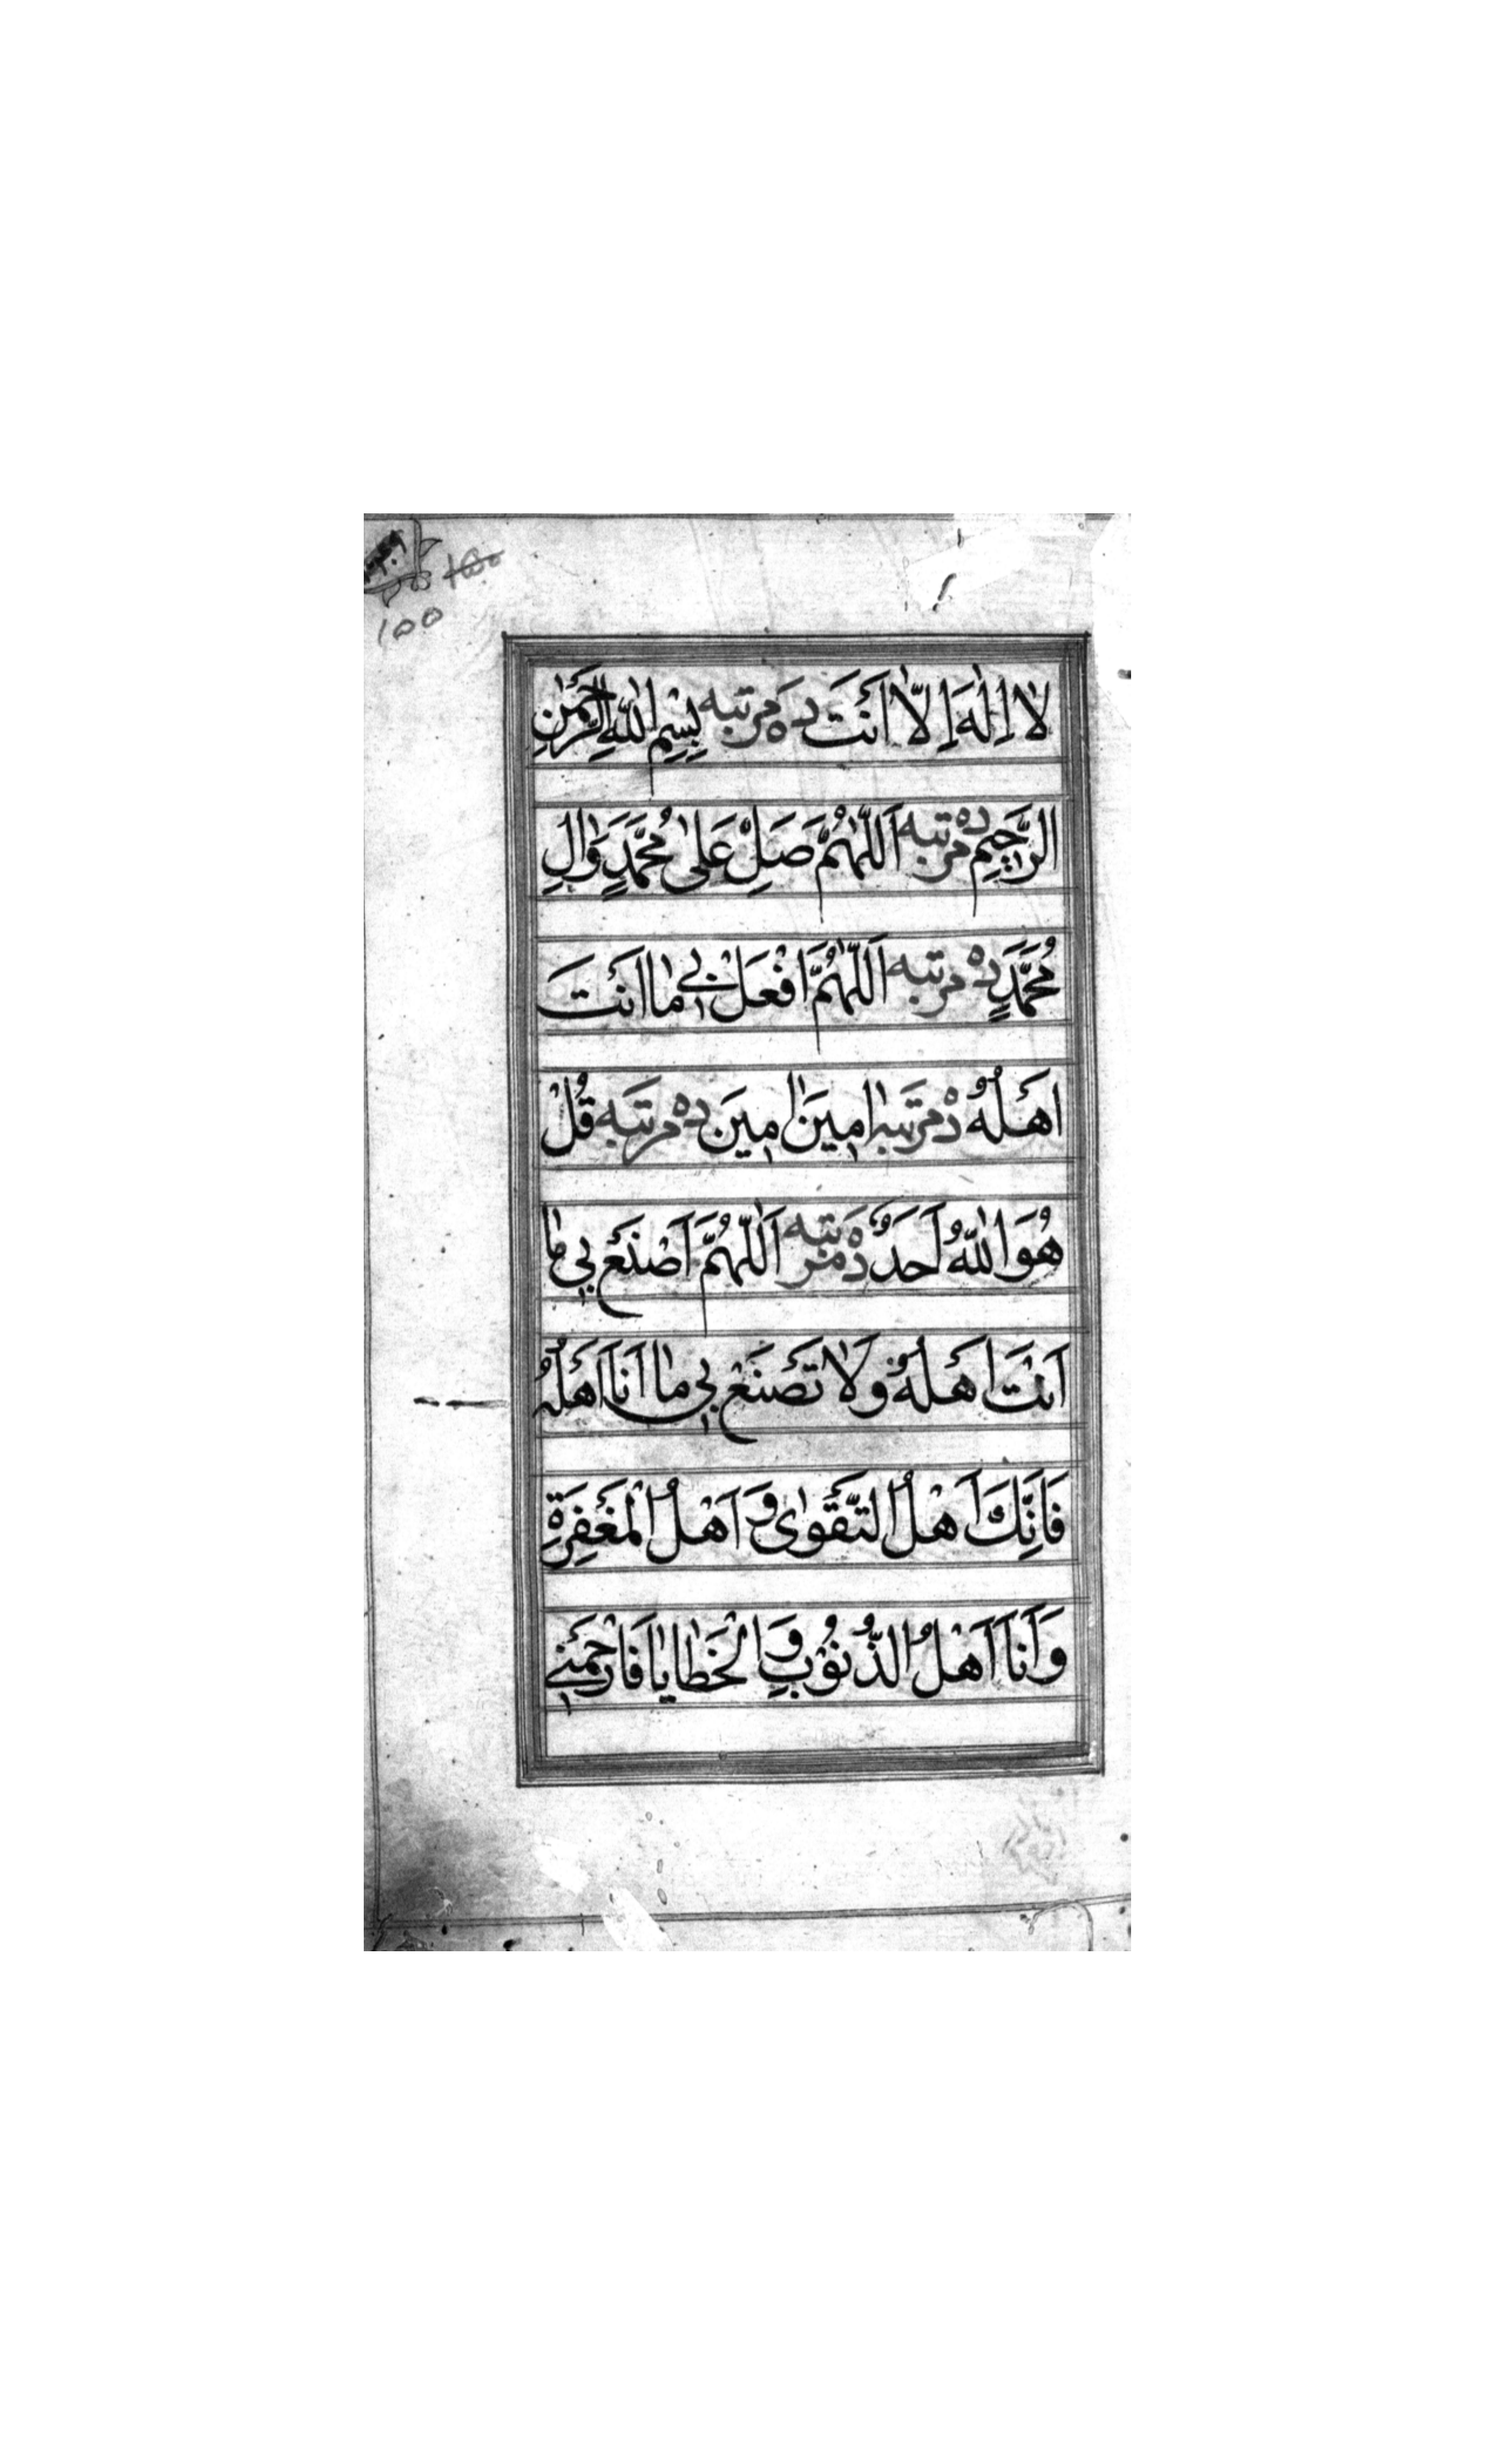 ١٥٥
لَا اِلٰهَ اِلَّا اَنْتَ ده مرتبه بِسْمِ اللّٰهِ الرَّحْمٰنِ
الرَّحِيْمِ ده مرتبه اَللّٰهُمَّ صَلِّ عَلٰى مُحَمَّدٍ وَاٰلِ
مُحَمَّدٍ ده مرتبه اَللّٰهُمَّ افْعَلْ بِيْ مٰا اَنْتَ
اَهْلُهُ ده مرتبه اٰمِيْنَ اٰمِيْنَ ده مرتبه قُلْ
هُوَ اللّٰهُ اَحَدٌ ده مرتبه اَللّٰهُمَّ اَصْنَعْ بِيْ مٰا
اَنْتَ اَهْلُهُ وَلَا تَصْنَعْ بِيْ مٰا اَنَا اَهْلُهُ
فَاِنَّكَ اَهْلُ التَّقْوٰى وَ اَهْلُ الْمَغْفِرَةِ
وَ اَنَا اَهْلُ الذُّنُوْبِ وَ الْخَطٰايٰا فَارْحَمْنِيْ